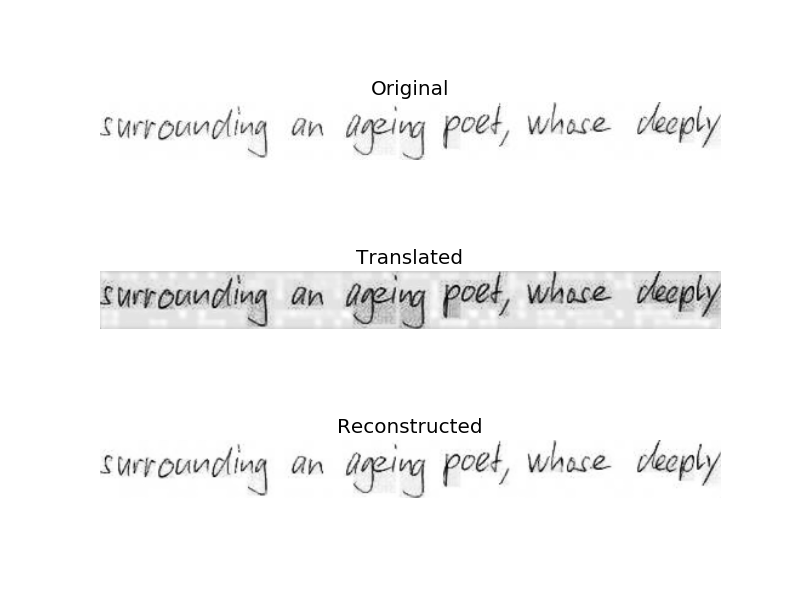 Original
surrounding an ageing poet, whose deeply
Translated
surrounding an ageing poet, whose deeply
Reconstructed
surrounding an ageing poet, whose deeply